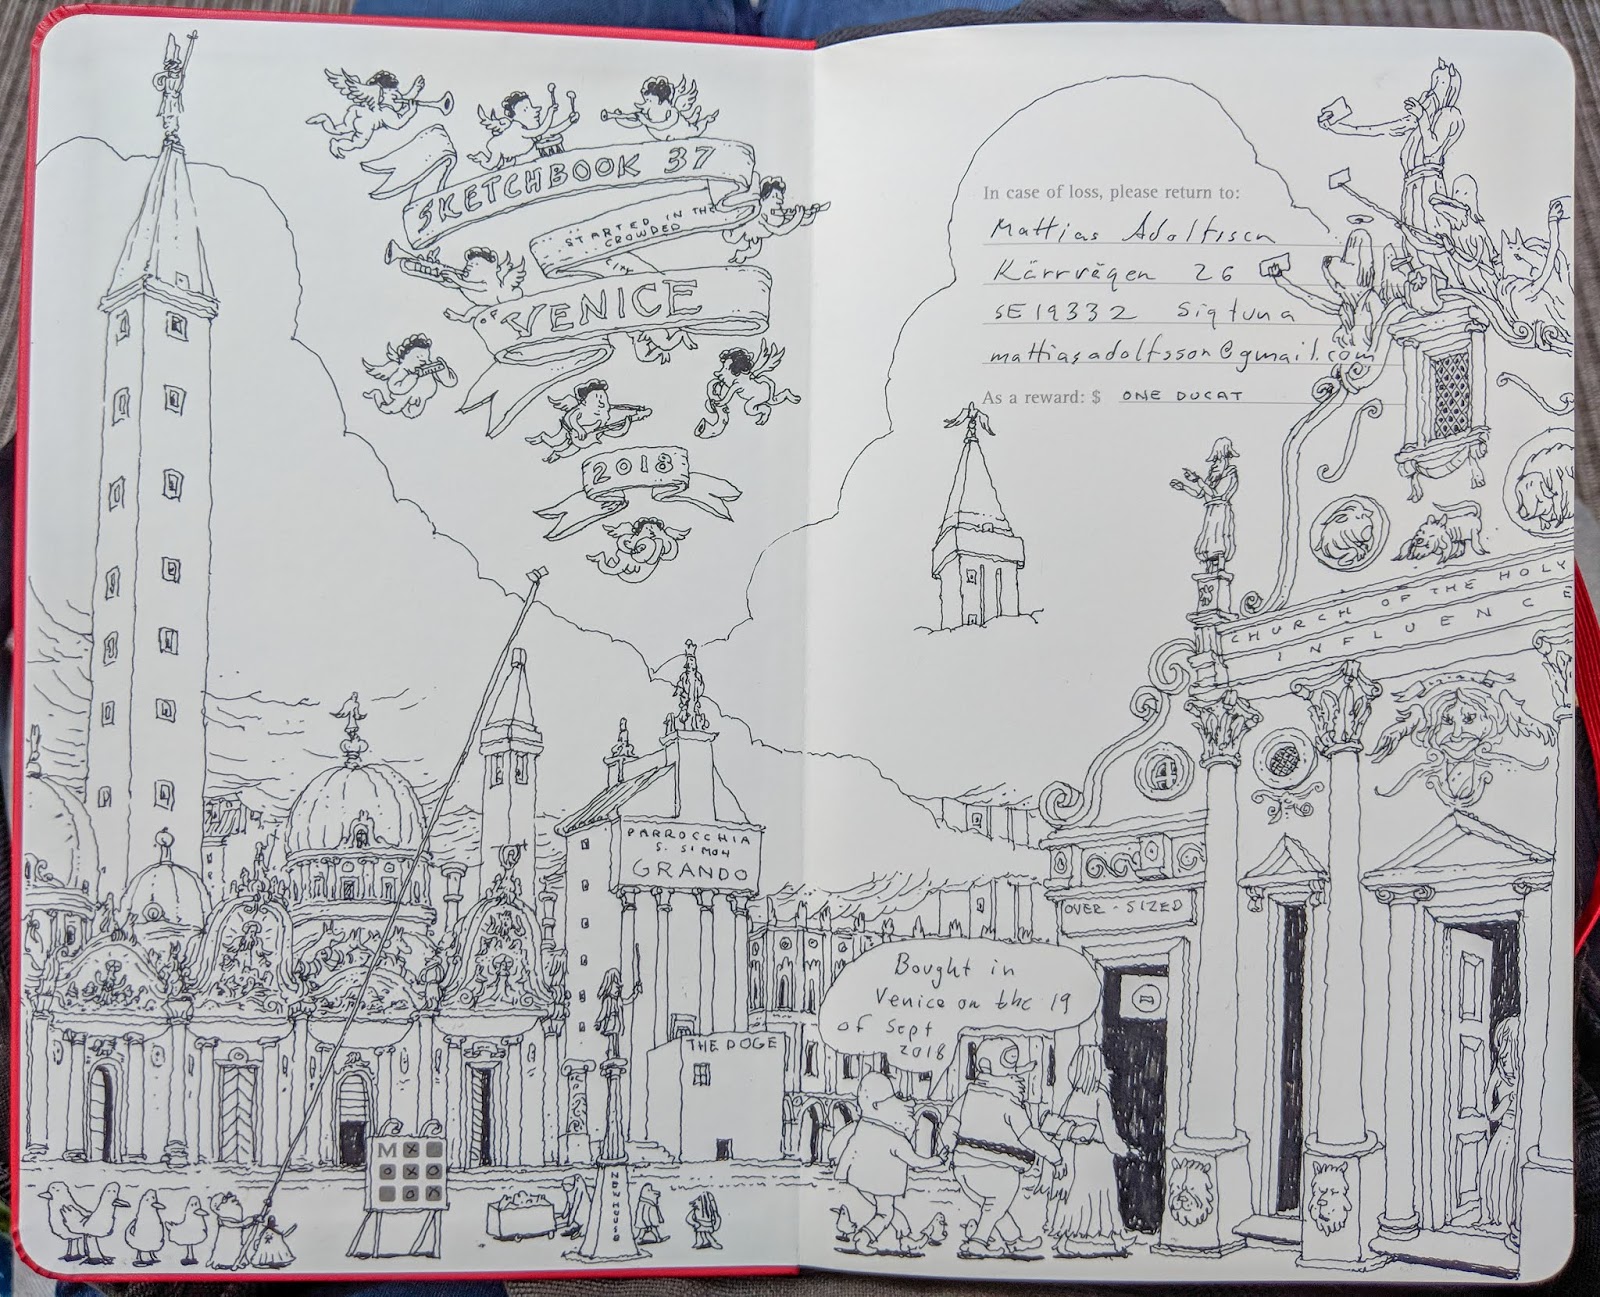 SKETCHBOOK 37
STARTED IN THE
CROWDED
CITY
OF VENICE
2018
PARROCCHIA
S. SIMON
GRANDO
THE DOGE
M
In case of loss, please return to:
Mattias Adolfsson
Kärrvägen 26
SE 19332 Sigtuna
mattiasadolfsson@gmail.com
As a reward: $ ONE DUCAT
CHURCH OF THE HOLY
INFLUENCE
OVER-SIZED
Bought in
Venice on the 19
of Sept
2018